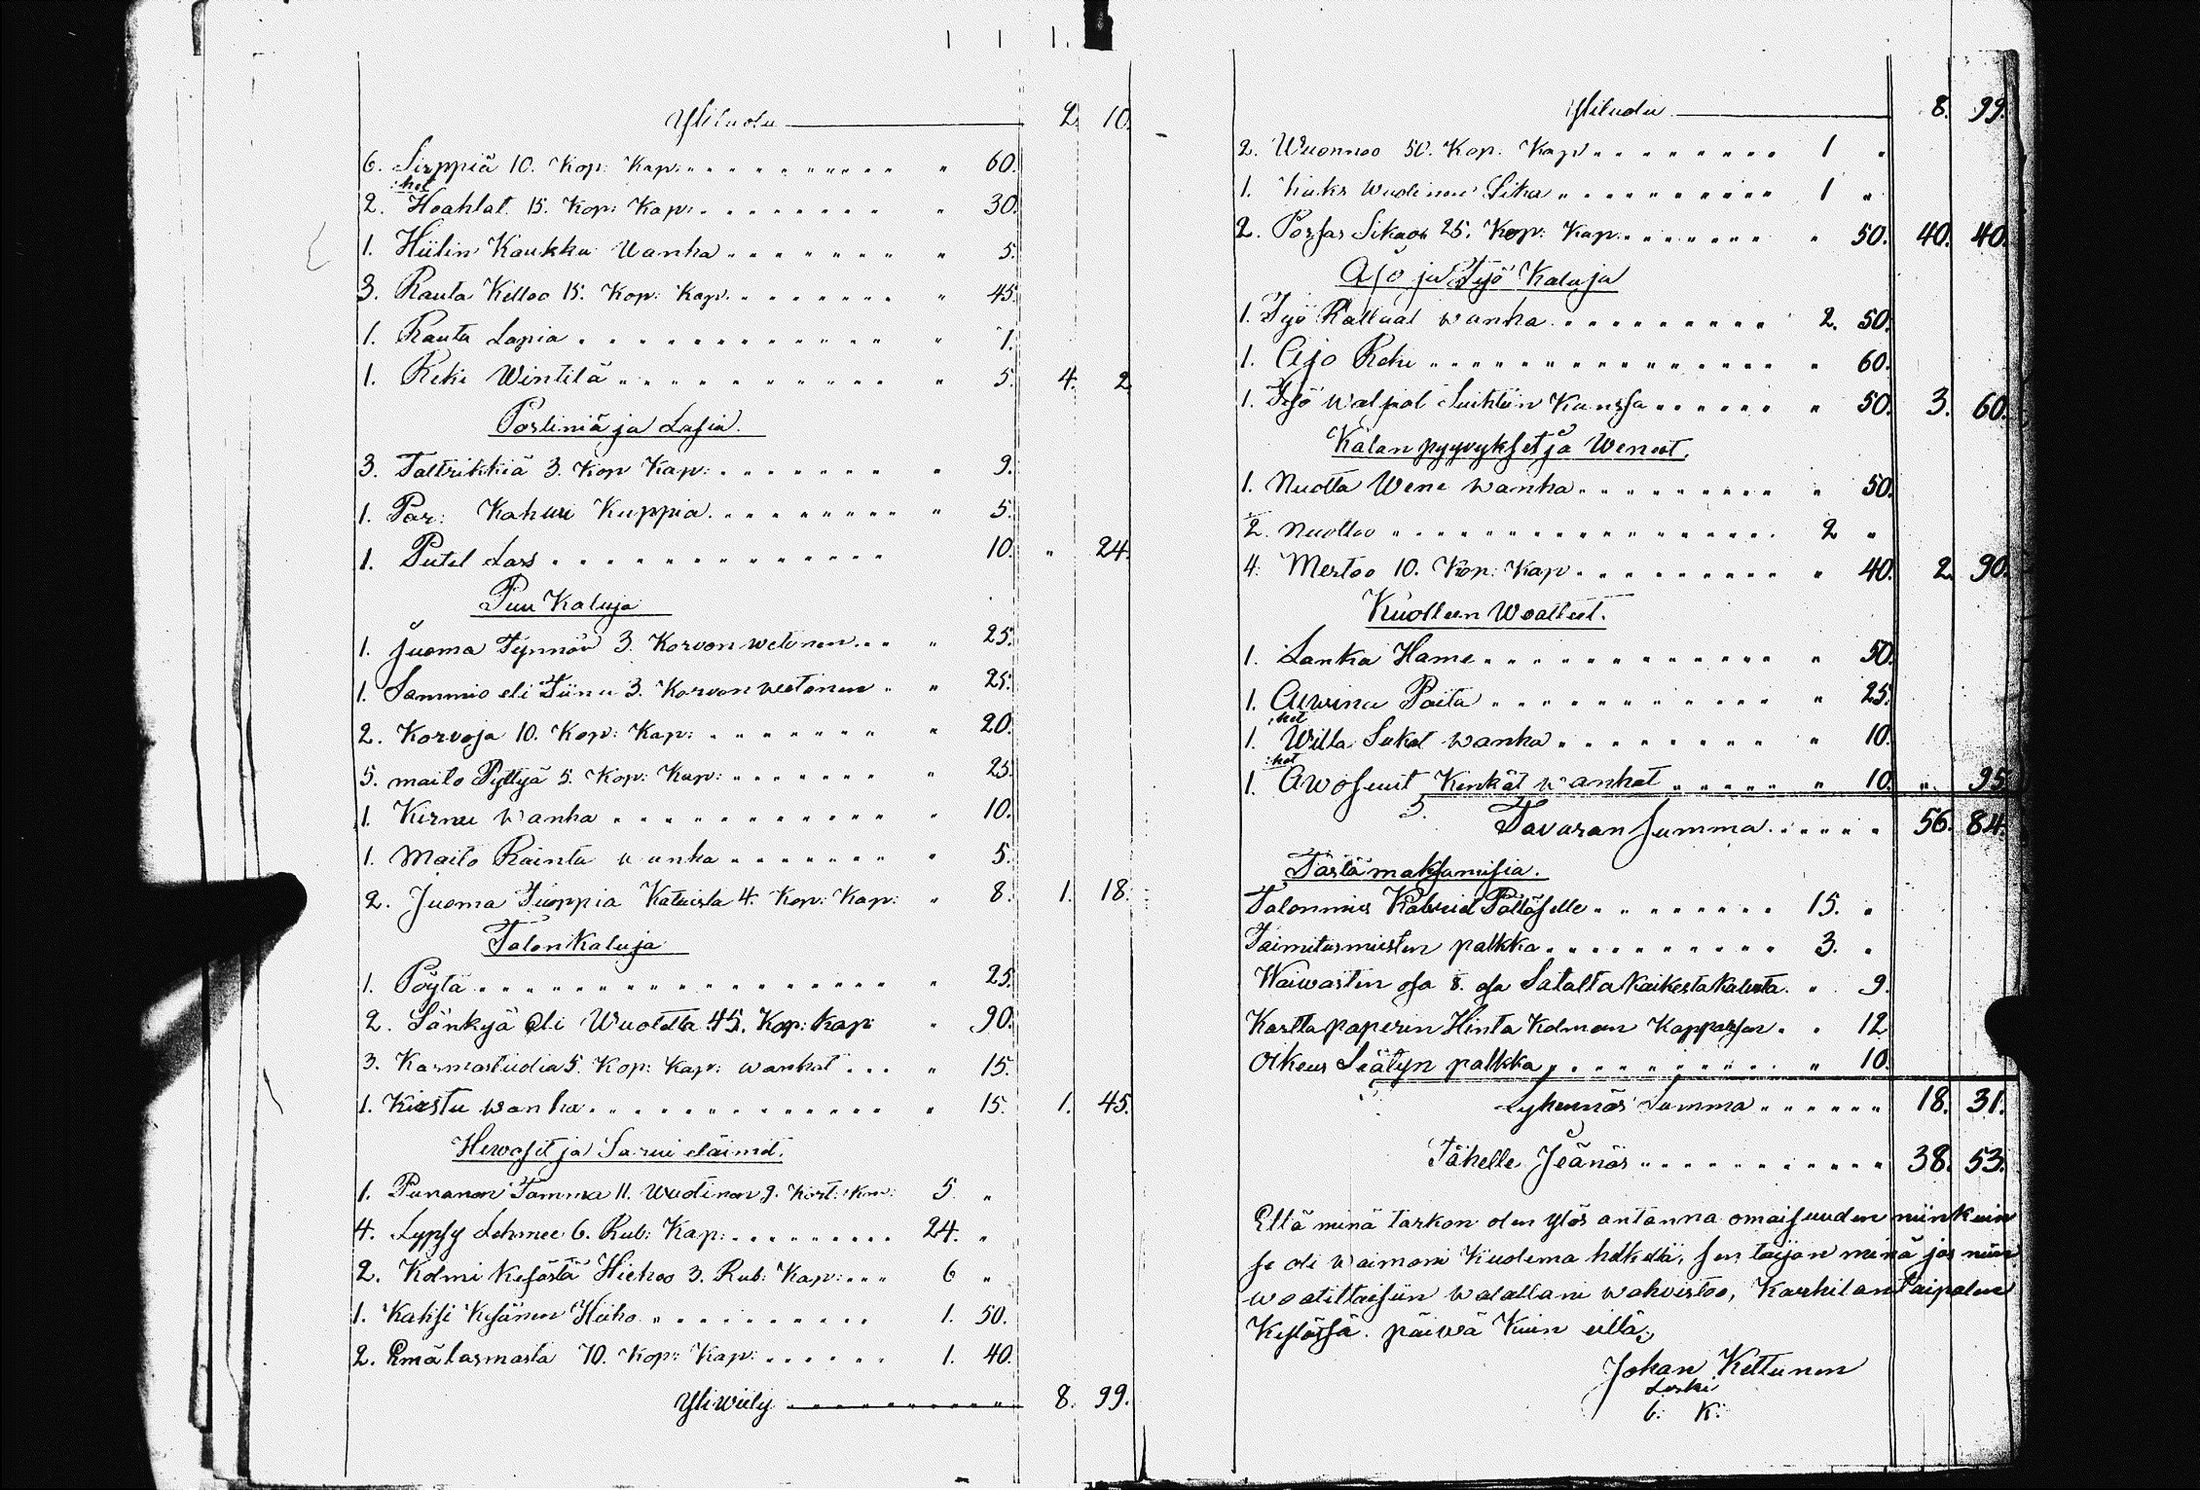 Ylituotu 2. 10.
6. Sirppiä 10. Kop: Kap: " 60.
:het
2. Hoahlat. 15. Kop: Kap: " 30.
1. Hiilin Koukku Wanha " 5.
3. Rauta Kelloo 15. Kop: Kap. " 45.
1. Rauta Lapia " 1.
1. Reki Wintilä " 5. 4. 2
Posliniä ja Lasia.
3. Taltrikkiä 3. Kop Kap: " 9.
1. Par: Kahwi Kuppia " 5.
1. Putel Lars 10. " 24.
Puu Kaluja
1. Juoma Tynnör 3. Korvon wetonen " 25.
1. Sammio eli Tiinu 3. Korvon wetonen " 25.
2. Korvoja 10. Kop: Kap: " 20.
5. maito Pyttyä 5. Kop: Kap: " 25.
1. Kirnu Wanha " 10.
1. Maito Rainta wanha " 5.
2. Juoma Tuoppia Kataista 4. Kop: Kap: " 8. 1. 18.
Talon Kaluja
1. Pöytä " 25.
2. Sänkyä eli Wuodetta 45. Kop: Kap: " 90.
3. Karmostudia 5. Kop: Kap: wanhat " 15.
1. Kirstu wanha " 15. 1. 45.
Hewoset ja Sarwi eläimet.
1. Punanen Tamma 11. Wuotinen 9. Kort: 5. "
4. Lypsy Lehmee 6. Rub: Kap: 24. "
2. Kolmi Kesästä Hiehoo 3. Rub: Kap: 6 "
1. Kaksi Kesänen Hieho " 1. 50.
2. Emä lasmasta 70. Kop: Kap: 1. 40.
Yliwiety 8. 99.
Ylituotu 8. 99.
2. Wuonnoo 50. Kop. Kap 1 "
1. kaks wuotinen Sika 1 "
2. Porsas Sikaa 25. Kop: Kap. " 50. 40. 40.
Ajo ja Työ Kaluja
1. Työ Rattaat wanha 2. 50.
1. Ajo Reki " 60.
1. Työ waljat Suihtiin Kanssa " 50. 3. 60.
Kalan pyyvykset ja Weneet.
1. Nuotta Wene wanha " 50.
2. Nuottoo 2 "
4. Mertoo 10. Kop: Kap " 40. 2. 90.
Kuolleen Woatteet.
1. Lanka Hame " 50.
1. Aiwina Paita " 25.
:het
1. Willa Sukat wanha " 10.
:het
1. Awosuut Kenkät wanhat " 10. ". 95.
Tavaran summa 56. 84.
Tästä maksamisia.
Talonmies Kabriel Pöllöselle 15. "
Taimitusmiesten palkka 3. "
Waiwastin osa 8. osa Satalta Kaikesta Kalusta. " 9.
Kartta paperin Hinta Kolmeen Kappalesen " 12
Oikeus Seätyn palkka " 10.
Lyhennös Summa 18. 31.
Tähelle Jeänös 38. 53.
Että minä tarkon olen ylös antanna omaisuuden niinkuin
se oli waimoni Kuolema hetkellä, sen taijan minä jos niin
woatittaisiin walallani wahvistoo, Karhilantaipaleen
Kylässä. päiwä Kuin eillä;
Johan Kettunen
Leski
b. K.